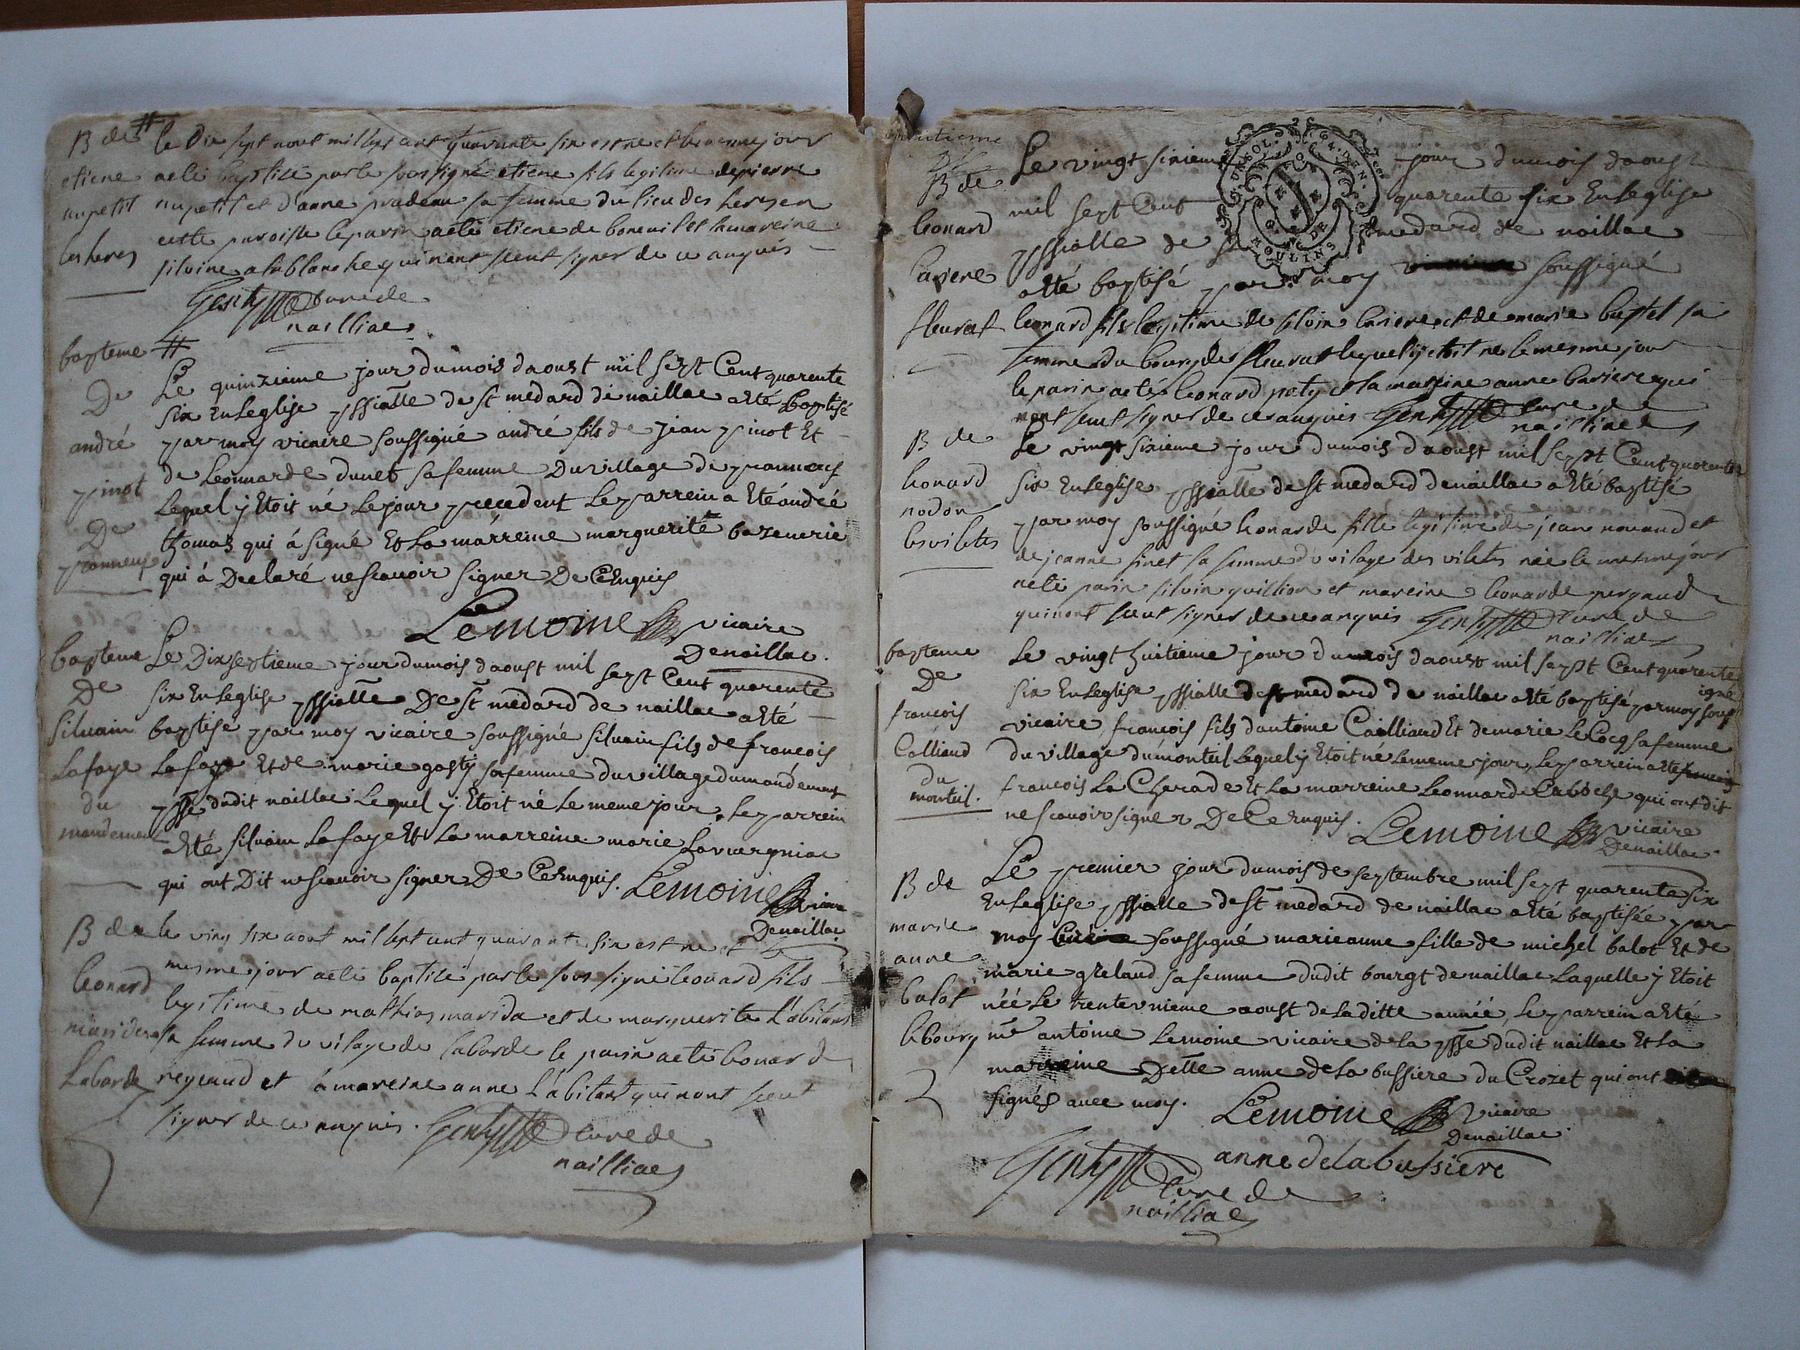 B de #
etiene
aupetit
les heres
le dix sept aout mil sept cent quarante six est ne et le mesme jour
a eté baptisé par le sous signé etiene fils legitime de pierre
aupetit et d'anne pradeau sa femme du lieu des heres en
cette paroisse le parin a eté etiene de boneuil et la mareine
silvine alablanche qui n'ont sceut signer de ce anquis
Genty curé de
nailliac
bapteme #
De
andré
pinot
De
Le quinzieme jour du mois d'aoust mil sept Cent quarente
six En Leglise pssialle de st medard de naillac a eté baptisé
par moy vicaire soussigné andré fils de jean pinot Et
de Leonnarde dunet sa femme Du village de
Lequel y Etoit né Le jour precedent Le parrein a Eté andré
thomas qui á signé Et La márreine marguerite bazenerie
qui á Declaré ne scavoir signer De Ce Enquis
Lemoine vicaire
De naillac.
bapteme
De
silvain
Lafaye
du
mandement
Le Dixseptieme jour du mois d'aoust mil sept Cent quarente
six En Leglise pssialle De st medard de naillac a eté
baptisé par moy vicaire soussigné silvain fils de francois
Lafaye Et de marie gasty sa femme du village du mandement
psse dudit naillac Lequel y Etoit né Le meme jour, Le parrein
a Eté silvain Lafaye Et La marreine marie Lavergniac
qui ont Dit ne scavoir signer De Ce Enquis. Lemoine vicaire
De naillac
B de
leonard
maridas
Labarde
le ving six aout mil sept cent quarante six est ne et le
mesme jour a eté baptisé par le sous signé leonard fils
legitime de mathias marida et de marguerite L'abitant
sa femme du vilage de labarde le parin a eté leonard
reyeaud et la mareine anne L'abitant qui n'ont sceut
signer de ce anquis. Genty curé de
nailliac
B de
leonard
lariere
fleurat
Le vingt sixieme jour du mois d'aoust
mil sept Cent quarente six En Leglise
pssialle de st medard de naillac
a eté baptisé par moy soussigné
leonard fils legitime de silvin lariere et de marie baptet sa
femme du bourg de fleurat lequel y etoit ne le mesme jour
le parin a eté leonard poty et la mareine anne lariere qui
n'ont sceut signer de ce anquis Genty curé de
nailliac
B de
leonard
nodon
les viletes
Le vingt sixieme jour du mois d'aoust mil sept Cent quarente
six En Leglise pssialle de st medard de naillac a eté baptisé
par moy soussigné leonarde fille legitime de jean nouaud et
de jeanne sinet sa femme du vilage des viletes née le mesme jour
a eté parin silvin quillion et mareine leonarde pergaud
qui n'ont sceut signer de ce anquis Genty curé de
nailliac
bapteme
De
francois
Calliaud
du
monteil.
Le vingt huitieme jour du mois d'aoust mil sept Cent quarente
six En Leglise pssialle de st medard de naillac a eté baptisé par moy soussigné
vicaire, francois fils d'antoine Cailliaud Et de marie Le Cocq sa femme
du village du monteil Lequel y Etoit né Le meme jour, Le parrein a eté
francois La Cherade Et La marreine Leonnarde qui ont dit
ne scavoir signer De Ce Enquis. Lemoine vicaire
De naillac.
B de
marie
anne
balot
le bourg
Le premier jour du mois de septembre mil sept quarente six
En Leglise pssialle de st medard de naillac a eté baptisée par
moy soussigné marie anne fille de michel balot Et de
marie greland sa femme dudit bourgt de naillac Laquelle y Etoit
néé Le trente unieme aoust de laditte annéé, Le parrein a Eté
mre antoine Lemoine vicaire de la psse dudit naillac Et La
marreine Delle anne de la bussiere du Crozet qui ont
signés avec moy. Lemoine vicaire
De naillac.
anne de la bussiere
Genty curé de
nailliac